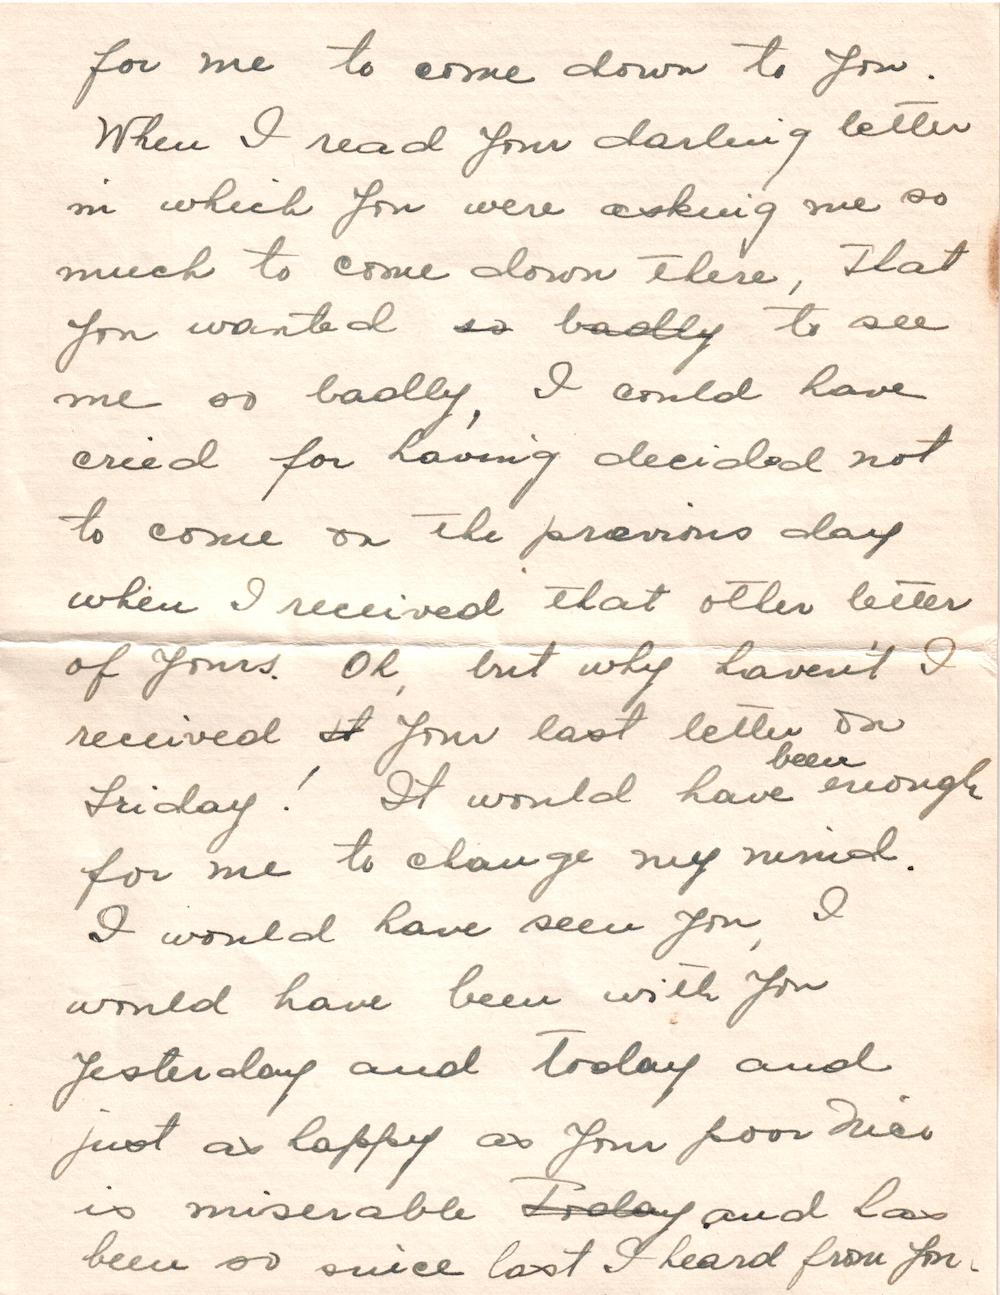 for me to come down to You.
When I read Your darling letter
in which You were asking me so
much to come down there, that
You wanted so badly to see
me so badly, I could have
cried for having decided not
to come on the previous day
when I received that other letter
of Yours. Oh, but why haven't I
received it Your last letter on
been
Friday! It would have enough
for me to change my mind.
I would have seen You, I
would have been with You
Yesterday and today and
just as happy as Your poor Nico
is miserable Today and has
been so since last I heard from You.